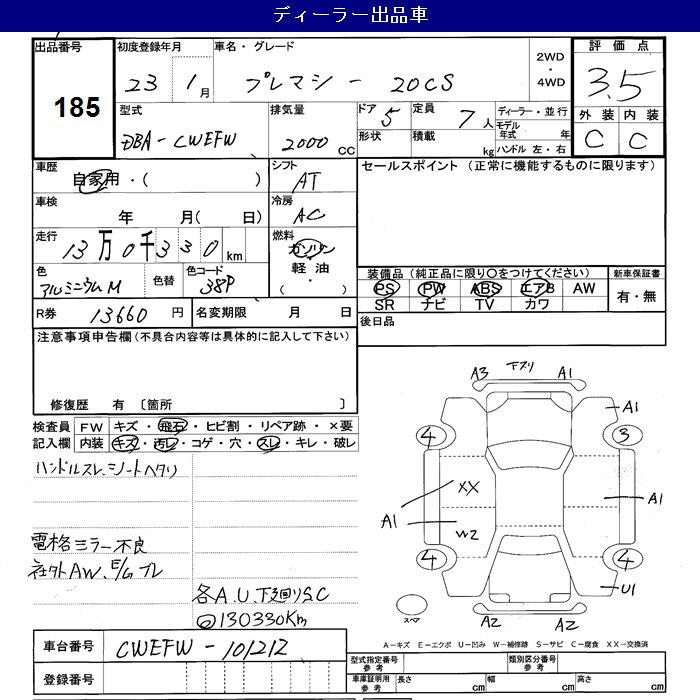 ディーラー出品車
出品番号 初度登録年月 車名・グレード 2WD・4WD 評価点
185 23 1月 プレマシー 20CS 3.5
型式 排気量 ドア 5 定員 7人 ディーラー・並行 外装 内装
DBA-CWEFW 2000 CC 形状 積載 kg モデル年式 年 C C
ハンドル 左・右
車歴 シフト セールスポイント (正常に機能するものに限ります)
自家用・( ) AT
車検 冷房
年 月( 日) AC
走行 燃料
13万0千330km ガソリン
軽油
・( )
色 色替 色コード 装備品 (純正品に限り○をつけてください) 新車保証書
アルミニウムM 38P PS PW ABS エアB AW 有・無
SR ナビ TV カワ
R券 13660円 名変期限 月 日 後日品
注意事項申告欄 (不具合内容等は具体的に記入して下さい)
修復歴 有 〔箇所 〕
検査員 FW キズ・飛石・ヒビ割・リペア跡・×要
記入欄 内装 キズ・汚レ・コゲ・穴・スレ・キレ・破レ
ハンドルスレ、シートヘタリ
電格ミラー不良
社外AW、E/Gブレ
各A.U.下廻りS.C
◎130330Km
A3 下スリ A1
A1
4 3
XX
A1 A1
W2
4 4
U1
スペア A2 A2
A-キズ E-エクボ U-凹み W-補修跡 S-サビ C-腐食 XX-交換済
車台番号 CWEFW-101212
登録番号
型式指定番号 参考 類別区分番号 参考
車庫証明用 参考 長さ cm 幅 cm 高さ cm